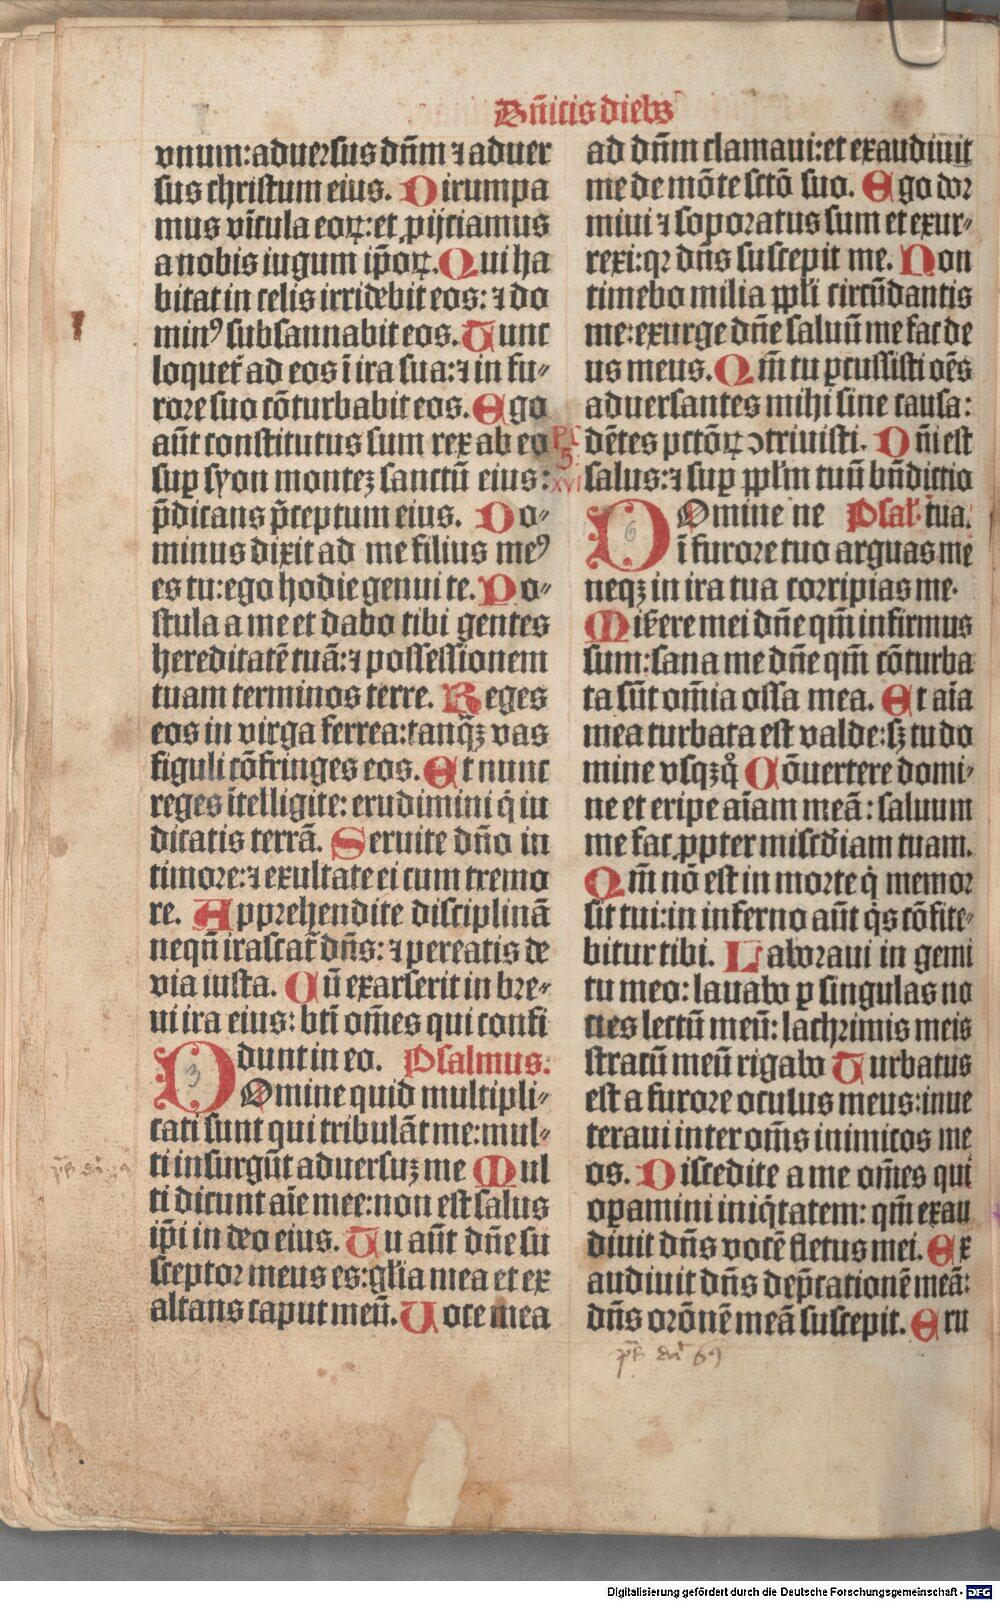 Dñicis diebꝫ
vnum:aduersus dñm ⁊ aduer
sus christum eius. Dirumpa
mus vĩcula eoꝝ:et ꝓijciamus
a nobis iugum ip̃oꝝ. Qui ha
bitat in celis irridebit eos: ⁊ do
minꝰ subsannabit eos. Tunc
loquet᷑ ad eos ĩ ira sua:⁊ in fu⸗
rore suo cõturbabit eos. Ego
aũt constitutus sum rex ab eo
suꝑ syon monteꝫ sanctũ eius:
p̃dicans p̃ceptum eius. Do⸗
minus dixit ad me filius meꝰ
es tu:ego hodie genui te. Po⸗
stula a me et dabo tibi gentes
hereditatẽ tuã:⁊ possessionem
tuam terminos terre. Reges
eos in virga ferrea:tanq̃ꝫ vas
figuli cõfringes eos. Et nunc
reges ĩtelligite: erudimini q̇ iu
dicatis terrã. Seruite dño in
timore:⁊ exultate ei cum tremo
re. Apprehendite disciplinã
nequñ irascat᷑ dñs: ⁊ pereatis de
via iusta. Cũ exarserit in bre⸗
ui ira eius: bti om̃es qui confi
dunt in eo. Psalmus.
3
DOmine quid multipli⸗
cati sunt qui tribulãt me:mul⸗
ti insurgũt aduersuꝫ me Mul
ti dicunt aĩe mee:non est salus
ip̃i in deo eius. Tu aũt dñe su
sceptor meus es:gl̃ia mea et ex
altans caput meũ. Uoce mea
ad dñm clamaui:et exaudiuit
me de mõte sctõ suo. Ego dor
miui ⁊ soporatus sum et exur⸗
rexi:qꝛ dñs suscepit me. Non
timebo milia ppl̃i circũdantis
me:exurge dñe saluũ me fac de
us meus. Qm̃ tu ꝑcussisti oẽs
aduersantes mihi sine causa:
dẽtes pctõꝝ ↄtriuisti. Dñi est
salus:⁊ suꝑ ppl̃m tuũ bñdictio
Psal̃. tua.
PC
5:
XVI
6
DOmine ne
ĩ furore tuo arguas me
neqꝫ in ira tua corripias me.
Mis̃ere mei dñe qm̃ infirmus
sum:sana me dñe qm̃ cõturba
ta sũt om̃ia ossa mea. Et aĩa
mea turbata est valde:sꝫ tu do
mine vsqꝫq̊ Cõuertere domi⸗
ne et eripe aĩam meã: saluum
me fac ꝓpter miscd̃iam tuam.
Qm̃ nõ est in morte q̇ memor
sit tui:in inferno aũt q̇s cõfite⸗
bitur tibi. Laboraui in gemi
tu meo: lauabo ꝑ singulas no
ctes lectũ meũ: lachrimis meis
stratũ meũ rigabo Turbatus
est a furore oculus meus:inue
teraui inter om̃s inimicos me
os. Discedite a me om̃es qui
oꝑamini iniq̇tatem: qm̃ exau
diuit dñs vocẽ fletus mei. Ex
audiuit dñs dep̃cationẽ meã:
dñs orõnẽ meã suscepit. Eru
Digitalisierung gefördert durch die Deutsche Forschungsgemeinschaft - DFG